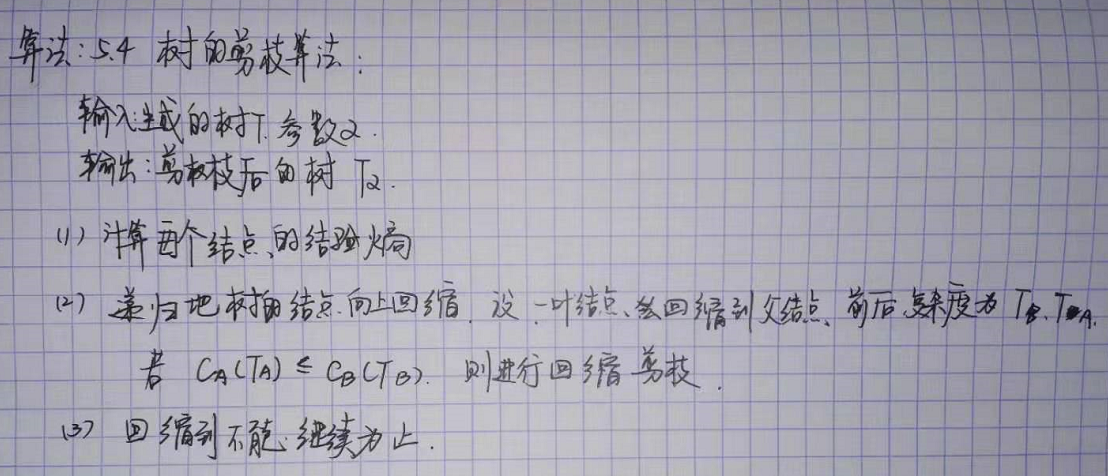 算法:5.4 树的剪枝算法:
输入:生成的树T.参数α.
输出:剪枝后的树 Tα.
(1) 计算每个结点的经验熵
(2) 递归地树的结点向上回缩.设一叶结点回缩到父结点前后复杂度为 TB.TA.
若 CA(TA) ≤ CB(TB). 则进行回缩剪枝.
(3) 回缩到不能继续为止.